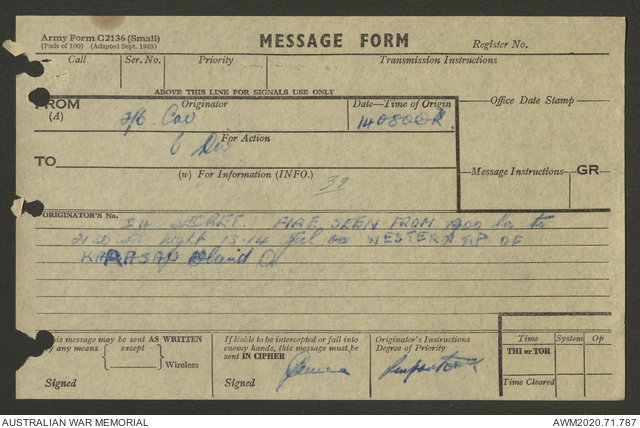 Army Form C2136 (Small)
(Pads of 100) (Adapted Sept. 1943)
MESSAGE FORM
Register No.
Call Ser. No. Priority Transmission Instructions
ABOVE THIS LINE FOR SIGNALS USE ONLY
FROM Originator Date—Time of Origin Office Date Stamp
(A) 2/6 Cav 140800K
For Action
6 Div
TO
(w) For Information (INFO.) Message Instructions GR
39
ORIGINATOR'S No.
SECRET. FIRE SEEN FROM 1900 hrs to
night 13-14 Jul on WESTERN TIP OF
Island
This message may be sent AS WRITTEN
by any means except
Wireless
Signed
If liable to be intercepted or fall into
enemy hands, this message must be
sent IN CIPHER
Signed
Originator's Instructions
Degree of Priority
Important
Time System Op
THI or TOR
Time Cleared
AUSTRALIAN WAR MEMORIAL AWM2020.71.787